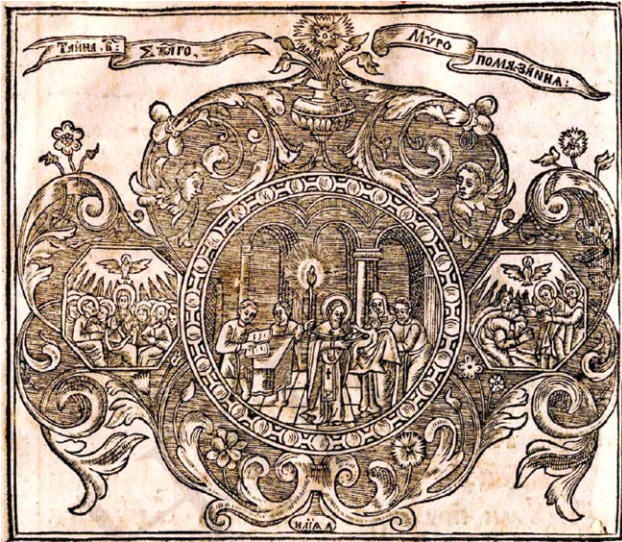 ТАЙНА .в҃: СТ҃АГО.
МѴРО
ПОМАЗАННА:
ИЛІѦ А